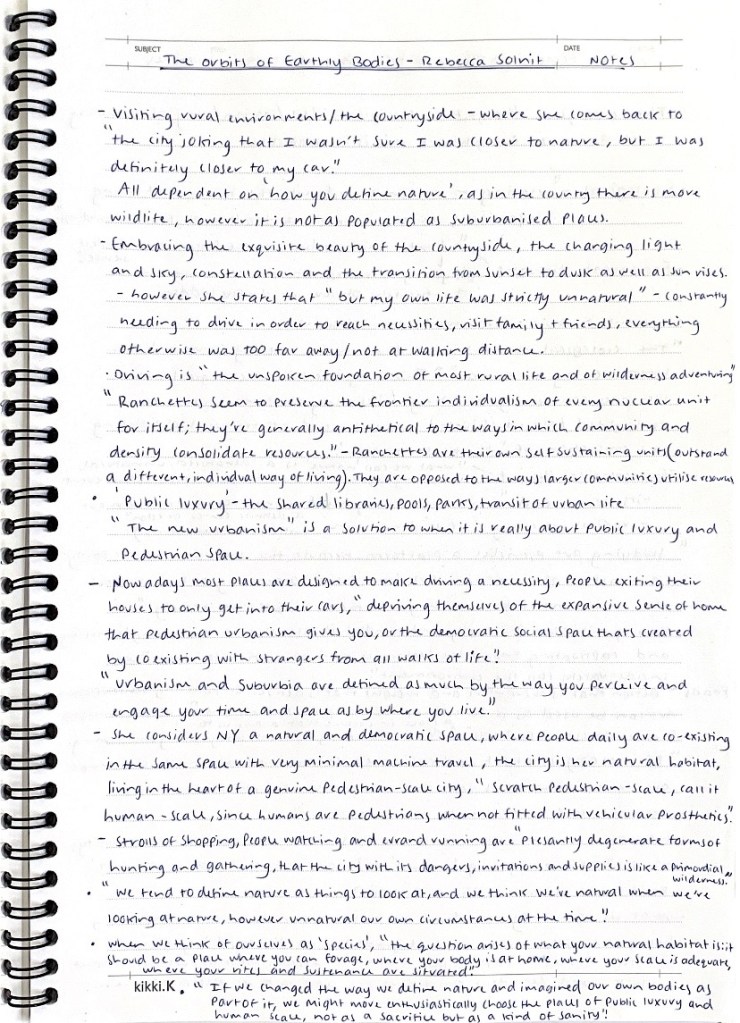 SUBJECT The Orbits of Earthly Bodies - Rebecca Solnit DATE NOTES
- Visiting rural environments/the countryside - where she comes back to
"the city joking that I wasn't sure I was closer to nature, but I was
definitely closer to my car."
All dependent on 'how you define nature', as in the country there is more
wildlife, however it is not as populated as suburbanised places.
- Embracing the exquisite beauty of the countryside, the changing light
and sky, constellation and the transition from sunset to dusk as well as sun rises.
- however she states that "but my own life was strictly unnatural" - constantly
needing to drive in order to reach necessities, visit family + friends, everything
otherwise was TOO far away/not at walking distance.
· Driving is "the unspoken foundation of most rural life and of wilderness adventuring"
"Ranchettes seem to preserve the frontier individualism of every nuclear unit
for itself; they're generally antithetical to the ways in which community and
density consolidate resources." - Ranchettes are their own self sustaining units (outstand
a different, individual way of living). They are opposed to the ways larger communities utilise resources
• 'Public luxury' - the shared libraries, pools, parks, transit of urban life
"The new urbanism" is a solution to when it is really about public luxury and
pedestrian space.
- Nowadays most places are designed to make driving a necessity, people exiting their
houses to only get into their cars, "depriving themselves of the expansive sense of home
that pedestrian urbanism gives you, or the democratic social space thats created
by coexisting with strangers from all walks of life".
"Urbanism and Suburbia are defined as much by the way you perceive and
engage your time and space as by where you live."
- She considers NY a natural and democratic space, where people daily are co-existing
in the same space with very minimal machine travel, the city is her natural habitat,
living in the heart of a genuine pedestrian-scale city, "scratch pedestrian-scale, call it
human-scale, since humans are pedestrians when not fitted with vehicular prosthetics."
- strolls of shopping, people watching and errand running are "plesantly degenerate forms of
hunting and gathering, that the city with its dangers, invitations and supplies is like a primordial
wilderness."
• "we tend to define nature as things to look at, and we think we're natural when we're
looking at nature, however unnatural our own circumstances at the time".
• when we think of ourselves as 'species', "the question arises of what your natural habitat is: it
should be a place where you can forage, where your body is at home, where your scale is adequate,
where your rites and sustenance are situated"
kikki.K • "If we changed the way we define nature and imagined our own bodies as
part of it, we might more enthusiastically choose the places of public luxury and
human scale, not as a sacrifice but as a kind of sanity".